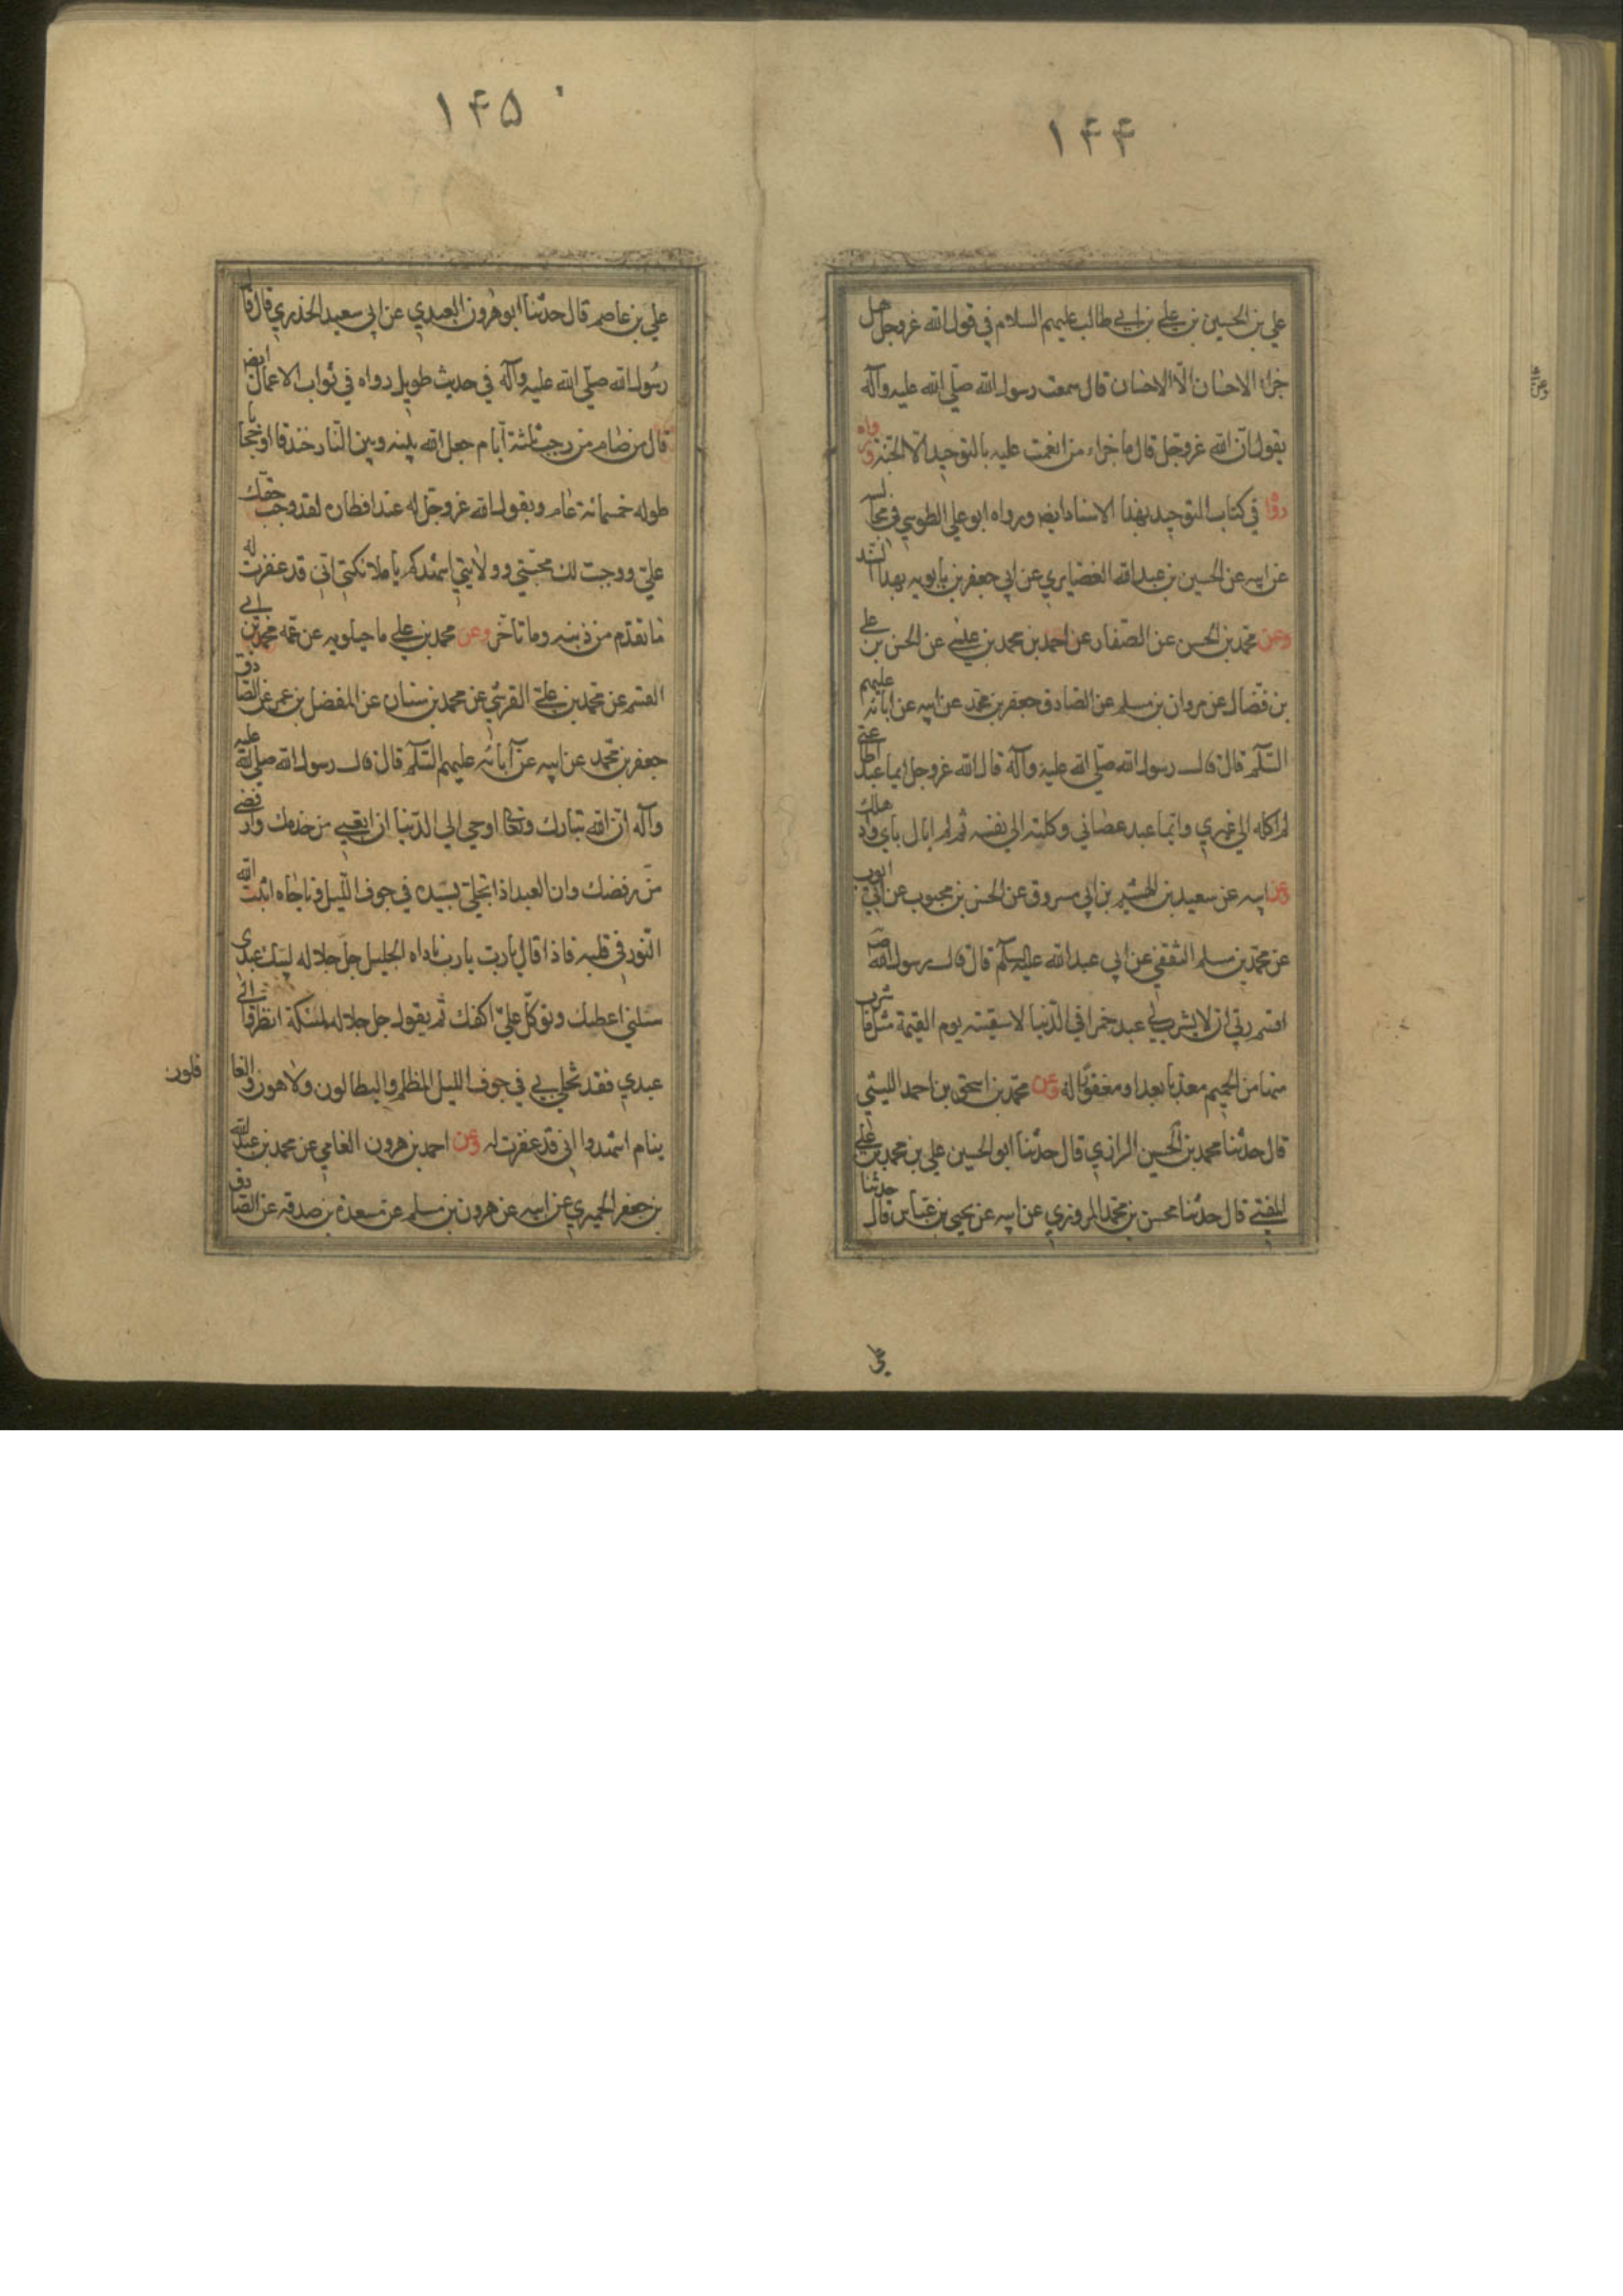 ۱۴۴
علي بن الحسين بن علي بن ابي طالب عليهم السلام في قول الله عز وجل هل
جزاء الاحسان الا الاحسان قال سمعت رسول الله صلي الله عليه وآله
يقول ان الله عز وجل قال ما جزاء من انعمت عليه بالتوحيد الا الجنة ورواه
في كتاب التوحيد بهذا الاسناد ايضا ورواه ابو علي الطوسي في مجالسه
عن ابيه عن الحسين بن عبد الله الغضايري عن ابي جعفر بن بابويه بهذا السند
وعن محمد بن الحسن عن الصفار عن احمد بن محمد بن عيسى عن الحسن بن علي
بن فضال عن مروان بن مسلم عن الصادق جعفر بن محمد عن ابيه عن ابائه عليهم
السلم قال قال رسول الله صلي الله عليه وآله قال الله عز وجل ايما عبد اطاعني
لم اكله الي غيري وايما عبد عصاني وكلته الي نفسه ثم لم ابال باي واد هلك
وعن ابيه عن سعيد بن الهيثم بن ابي مسروق عن الحسن بن محبوب عن ابي ايوب
عن محمد بن مسلم الثقفي عن ابي عبد الله عليه السلم قال قال رسول الله ص
اقسم ربي ان لا يشرب لي عبد خمرا في الدنيا لا سقيته يوم القيمة مثل ما شرب
منها من الحميم معذبا بعد او مغفورا له وعن محمد بن اسحق بن احمد الليثي
قال حدثنا محمد بن الحسين الرازي قال حدثنا ابو الحسين علي بن محمد بن علي
المفتي قال حدثنا محسن بن محمد المروزي عن ابيه عن يحيي بن عياش قال حدثنا
علي
۱۴۵
علي بن عاصم قال حدثنا ابو هرون العبدي عن ابي سعيد الخدري قال قال
رسول الله صلي الله عليه وآله في حديث طويل رواه في ثواب الاعمال ايضا
قال من صام من رجب ثلثة ايام جعل الله بينه وبين النار خندقا او حجابا
طوله خمسمائة عام ويقول الله عز وجل له عند افطاره لقد وجب حقك
علي ووجبت لك محبتي وولايتي اشهدكم يا ملائكتي اني قد غفرت له
ما تقدم من ذنبه وما تاخر وعن محمد بن علي ماجيلويه عن عمه محمد بن ابي
القسم عن محمد بن علي القرشي عن محمد بن سنان عن المفضل بن عمر عن الصادق
جعفر بن محمد عن ابيه عن آبائه عليهم السلم قال قال رسول الله صلي الله عليه
وآله ان الله تبارك وتعالى اوحي الي الدنيا ان اتعبي من خدمك وار فضي
من رفضك وان العبد اذا تخلي بسيده في جوف الليل وناجاه اثبت الله
النور في قلبه فاذا قال يا رب يا رب ناداه الجليل جل جلاله لبيك عبدي
سلني اعطيك وتوكل علي اكفك ثم يقول جل جلاله لملئكته انظروا الي
عبدي فقد تخلي بي في جوف الليل المظلم والبطالون ولاهون والغا
فلون
ينام اشهدوا اني قد غفرت له وعن احمد بن هرون الفامي عن محمد بن عبد الله
بن جعفر الحميري عن ابيه عن هرون بن مسلم عن مسعدة بن صدقة عن الصادق